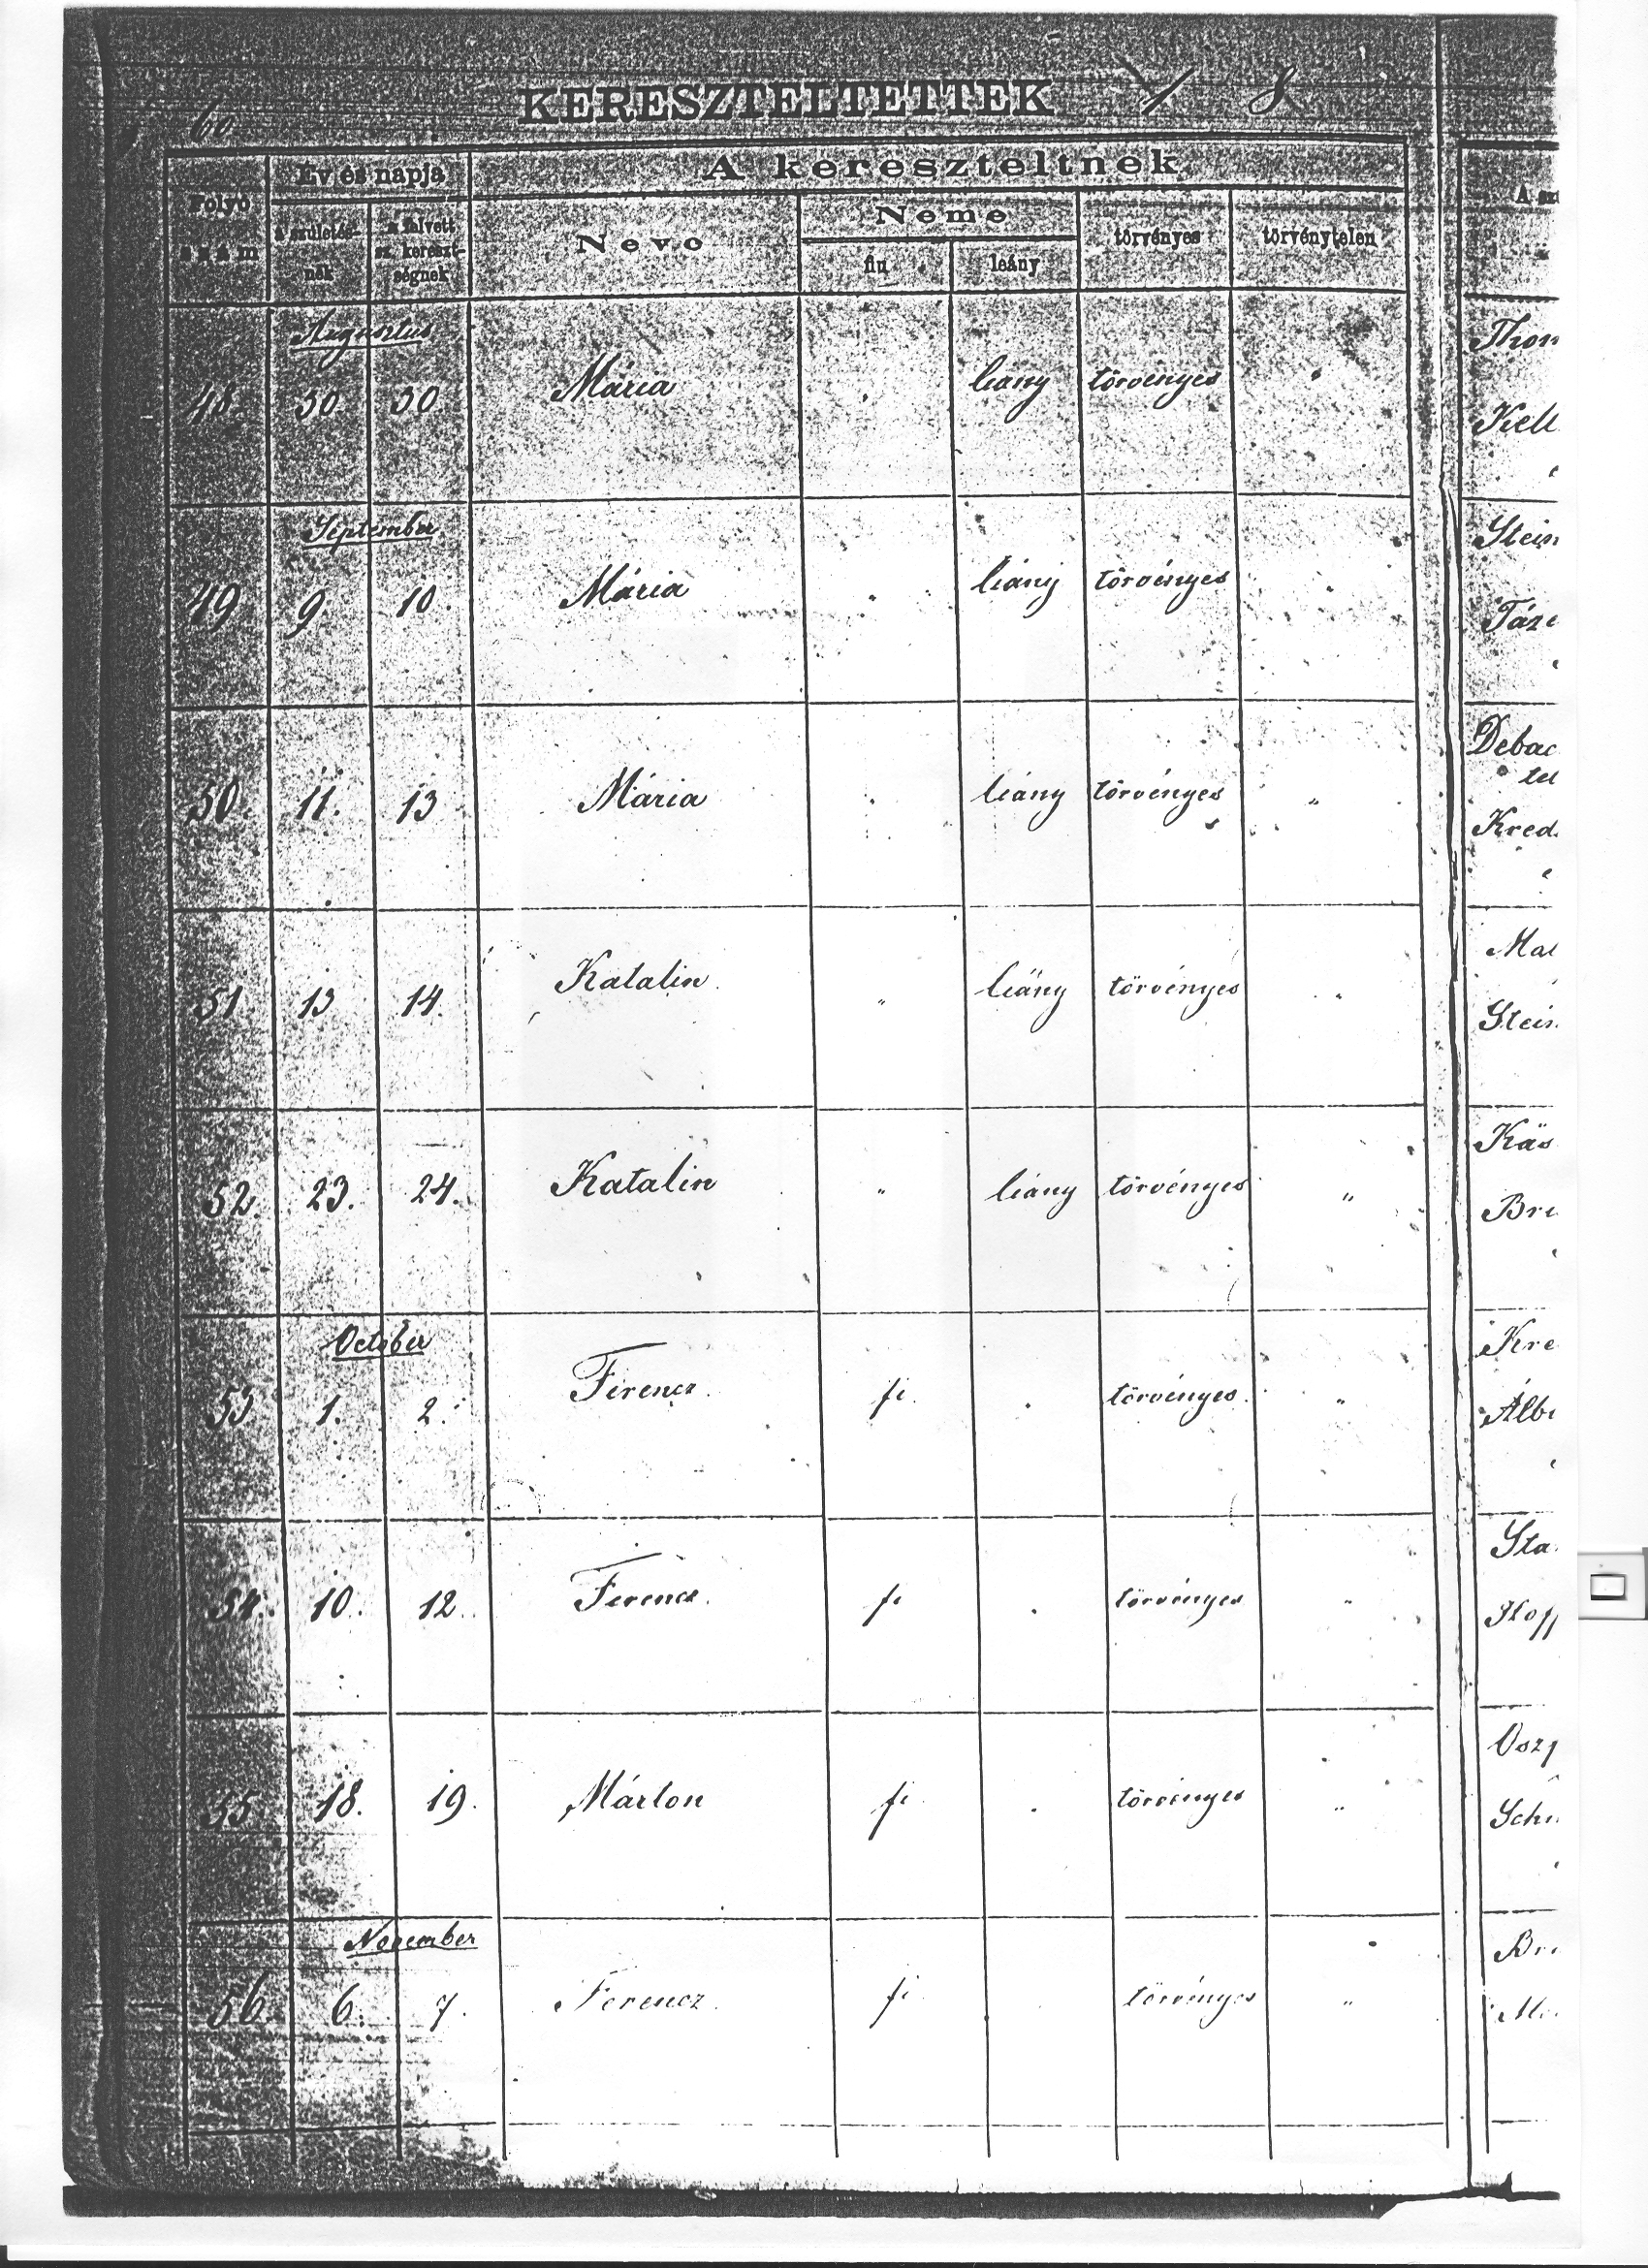 60
KERESZTELTETTEK 1 8
Folyó szám
Év és napja
a születésnek
a felvett sz. keresztségnek
A kereszteltnek
Neve
Neme
fiu
leány
törvényes
törvénytelen
A sz
Augusztus
48 30 30 Mária leány törvényes
Thom
Kell
September
49 9. 10. Mária leány törvényes
Stein
Táze
50. 11. 13 Mária leány törvényes "
Debac
tel
Kred
51 13 14. Katalin. " leány törvényes "
Mat
Stein
52. 23. 24. Katalin " leány törvényes "
Käs
Bre
October
53 1. 2. Ferencz. fi. törvényes. "
Kre
Albe
54. 10. 12. Ferencz. fi törvényes "
Sta
Hoff
55 18. 19. Márton fi törvényes "
Oszt
Schn
November
56. 6. 7. Ferencz. fi törvényes "
Br